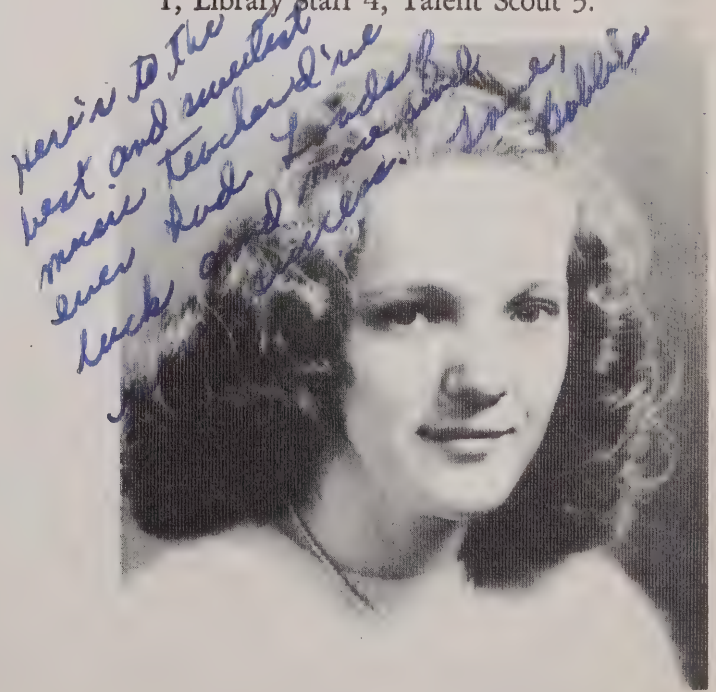 1, Library Staff 4, Talent Scout 3.
Here's to the
best and sweetest
music teacher I've
ever had. Loads of
luck and more and
success. Love,
Bobbie